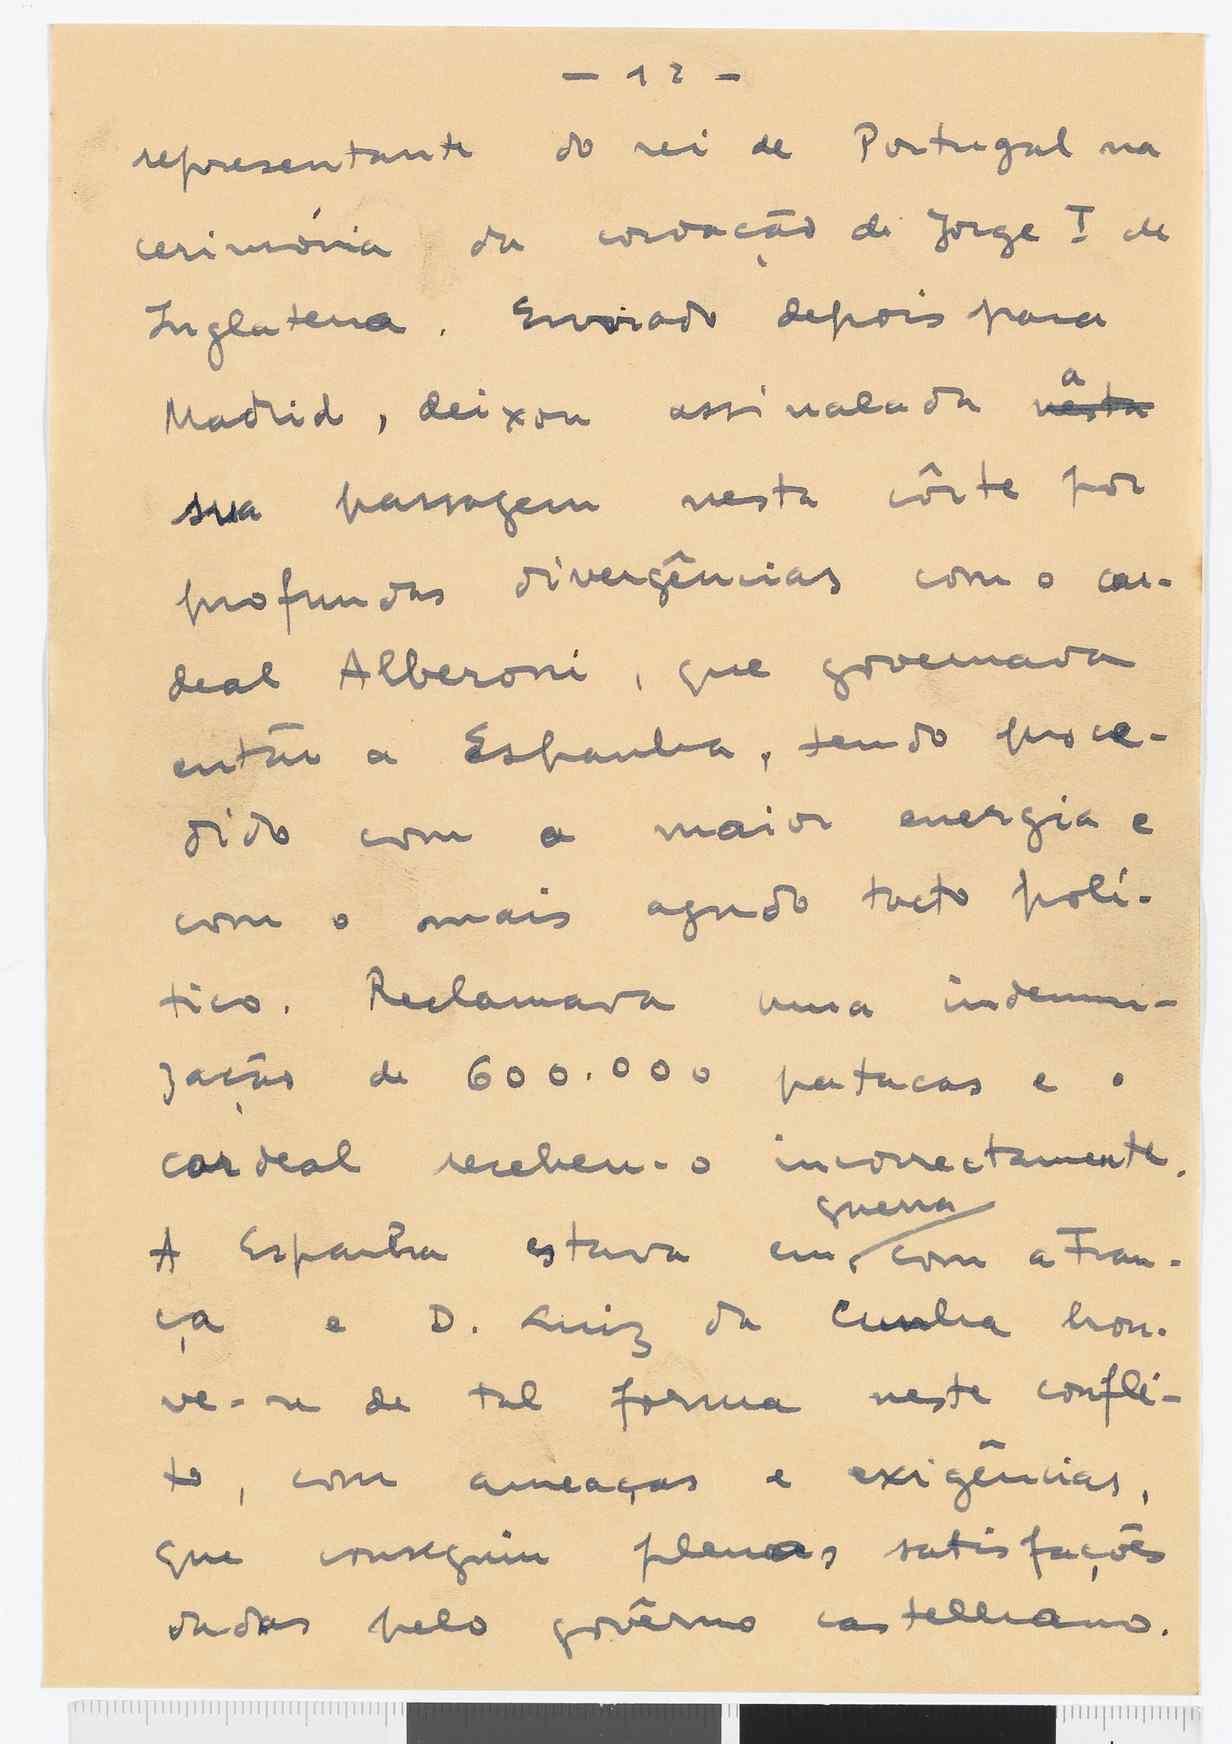 - 12 -
representante do rei de Portugal na
cerimónia da coroação de Jorge I de
Inglaterra. Enviado depois para
Madrid, deixou assinalada nesta a
sua passagem nesta côrte por
profundas divergências com o car-
deal Alberoni, que governava
então a Espanha, tendo proce-
dido com a maior energia e
com o mais agudo tacto polí-
tico. Reclamava uma indemni-
zação de 600.000 patacas e o
cardeal recebeu-o incorrectamente.
A Espanha estava em guerra com a Fran-
ça e D. Luiz da Cunha hou-
ve-se de tal forma neste confli-
to, com ameaças e exigências,
que conseguiu plenas satisfações
dadas pelo govêrno castelhano.